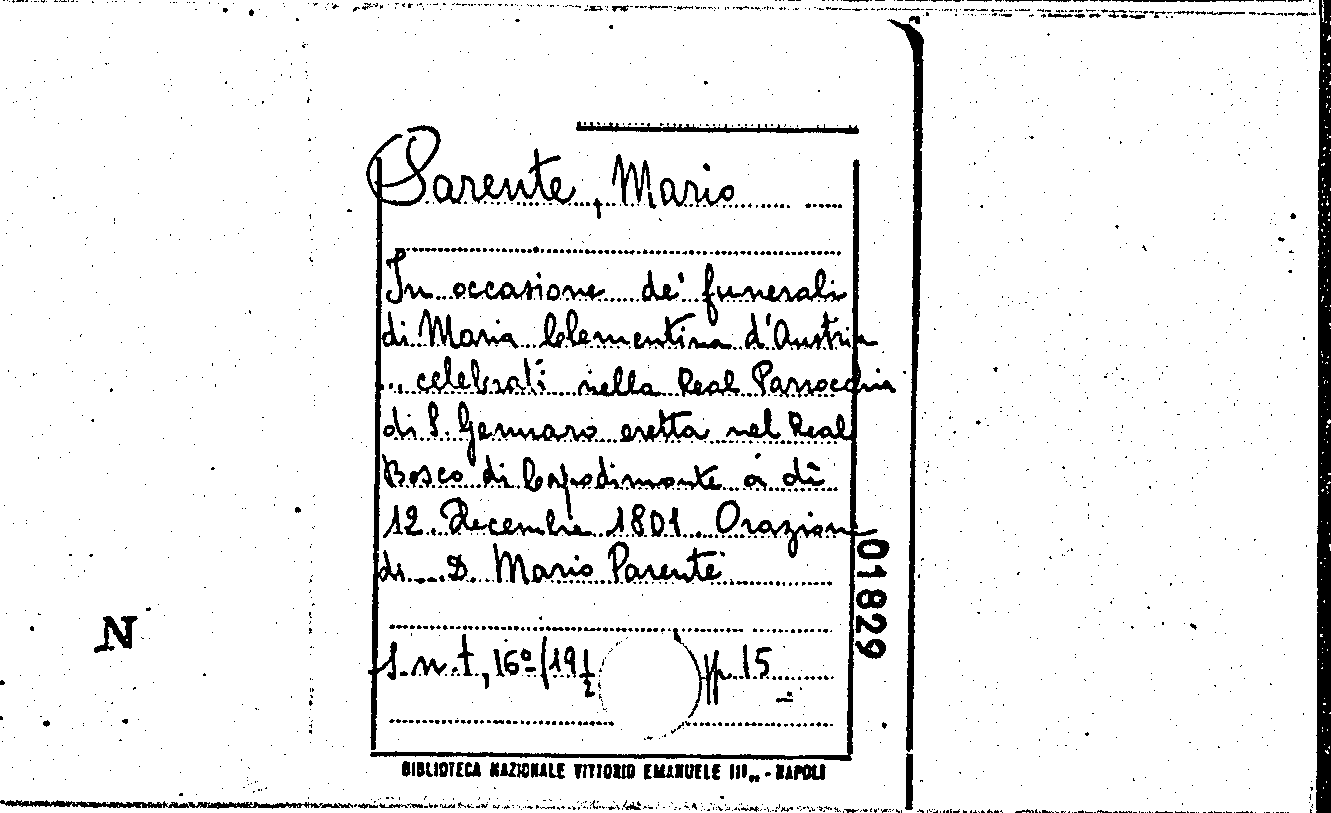 Parente, Mario
In occasione de' funerali
di Maria Clementina d'Austria
... celebrati nella Real Parrocchia
di S. Gennaro eretta nel Real
Bosco di Capodimonte a dì
12 Decembre 1801. Orazione
di ... D. Mario Parente
S.n.t, 16º (19½ pp. 15
BIBLIOTECA NAZIONALE VITTORIO EMANUELE III„ - NAPOLI
01829
N